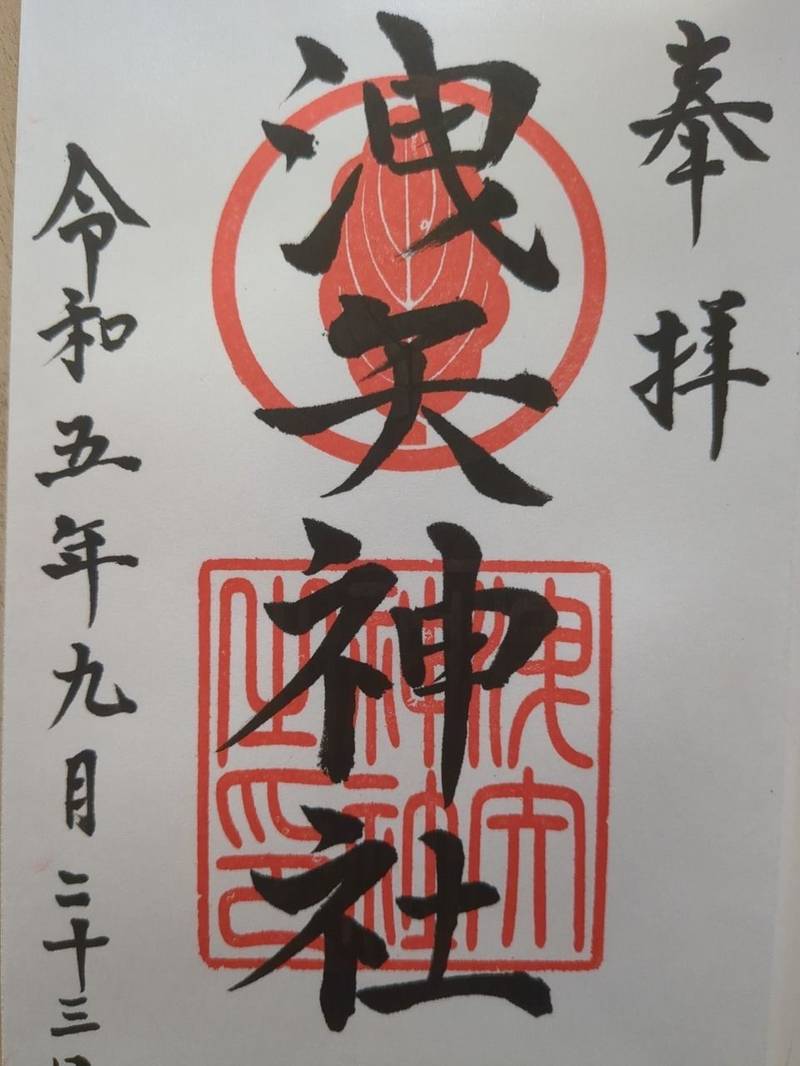 奉拝
洩矢神社
洩矢神社之印
令和五年九月二十三日